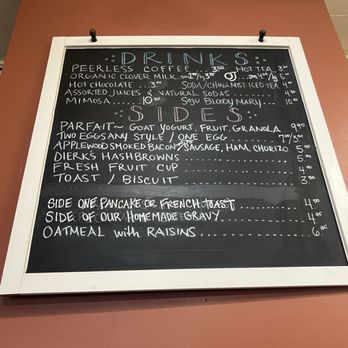 DRINKS
PEERLESS COFFEE ... 3.50 HOT TEA 3.50
ORGANIC CLOVER MILK OJ
HOT CHOCOLATE ... 3.50 SODA/CHINA MIST ICED TEA 3.50
ASSORTED JUICES & NATURAL SODAS 4
MIMOSA ... 10.50 SOJU BLOODY MARY 10
SIDES
PARFAIT~ GOAT YOGURT, FRUIT, GRANOLA 9.95
TWO EGGS ANY STYLE / ONE EGG
APPLEWOOD SMOKED BACON, SAUSAGE, HAM, CHORIZO 5.95
DIERK'S HASHBROWNS 5
FRESH FRUIT CUP 4
TOAST / BISCUIT 3
SIDE ONE PANCAKE OR FRENCH TOAST 4
SIDE OF OUR HOMEMADE GRAVY 4.95
OATMEAL with RAISINS 6